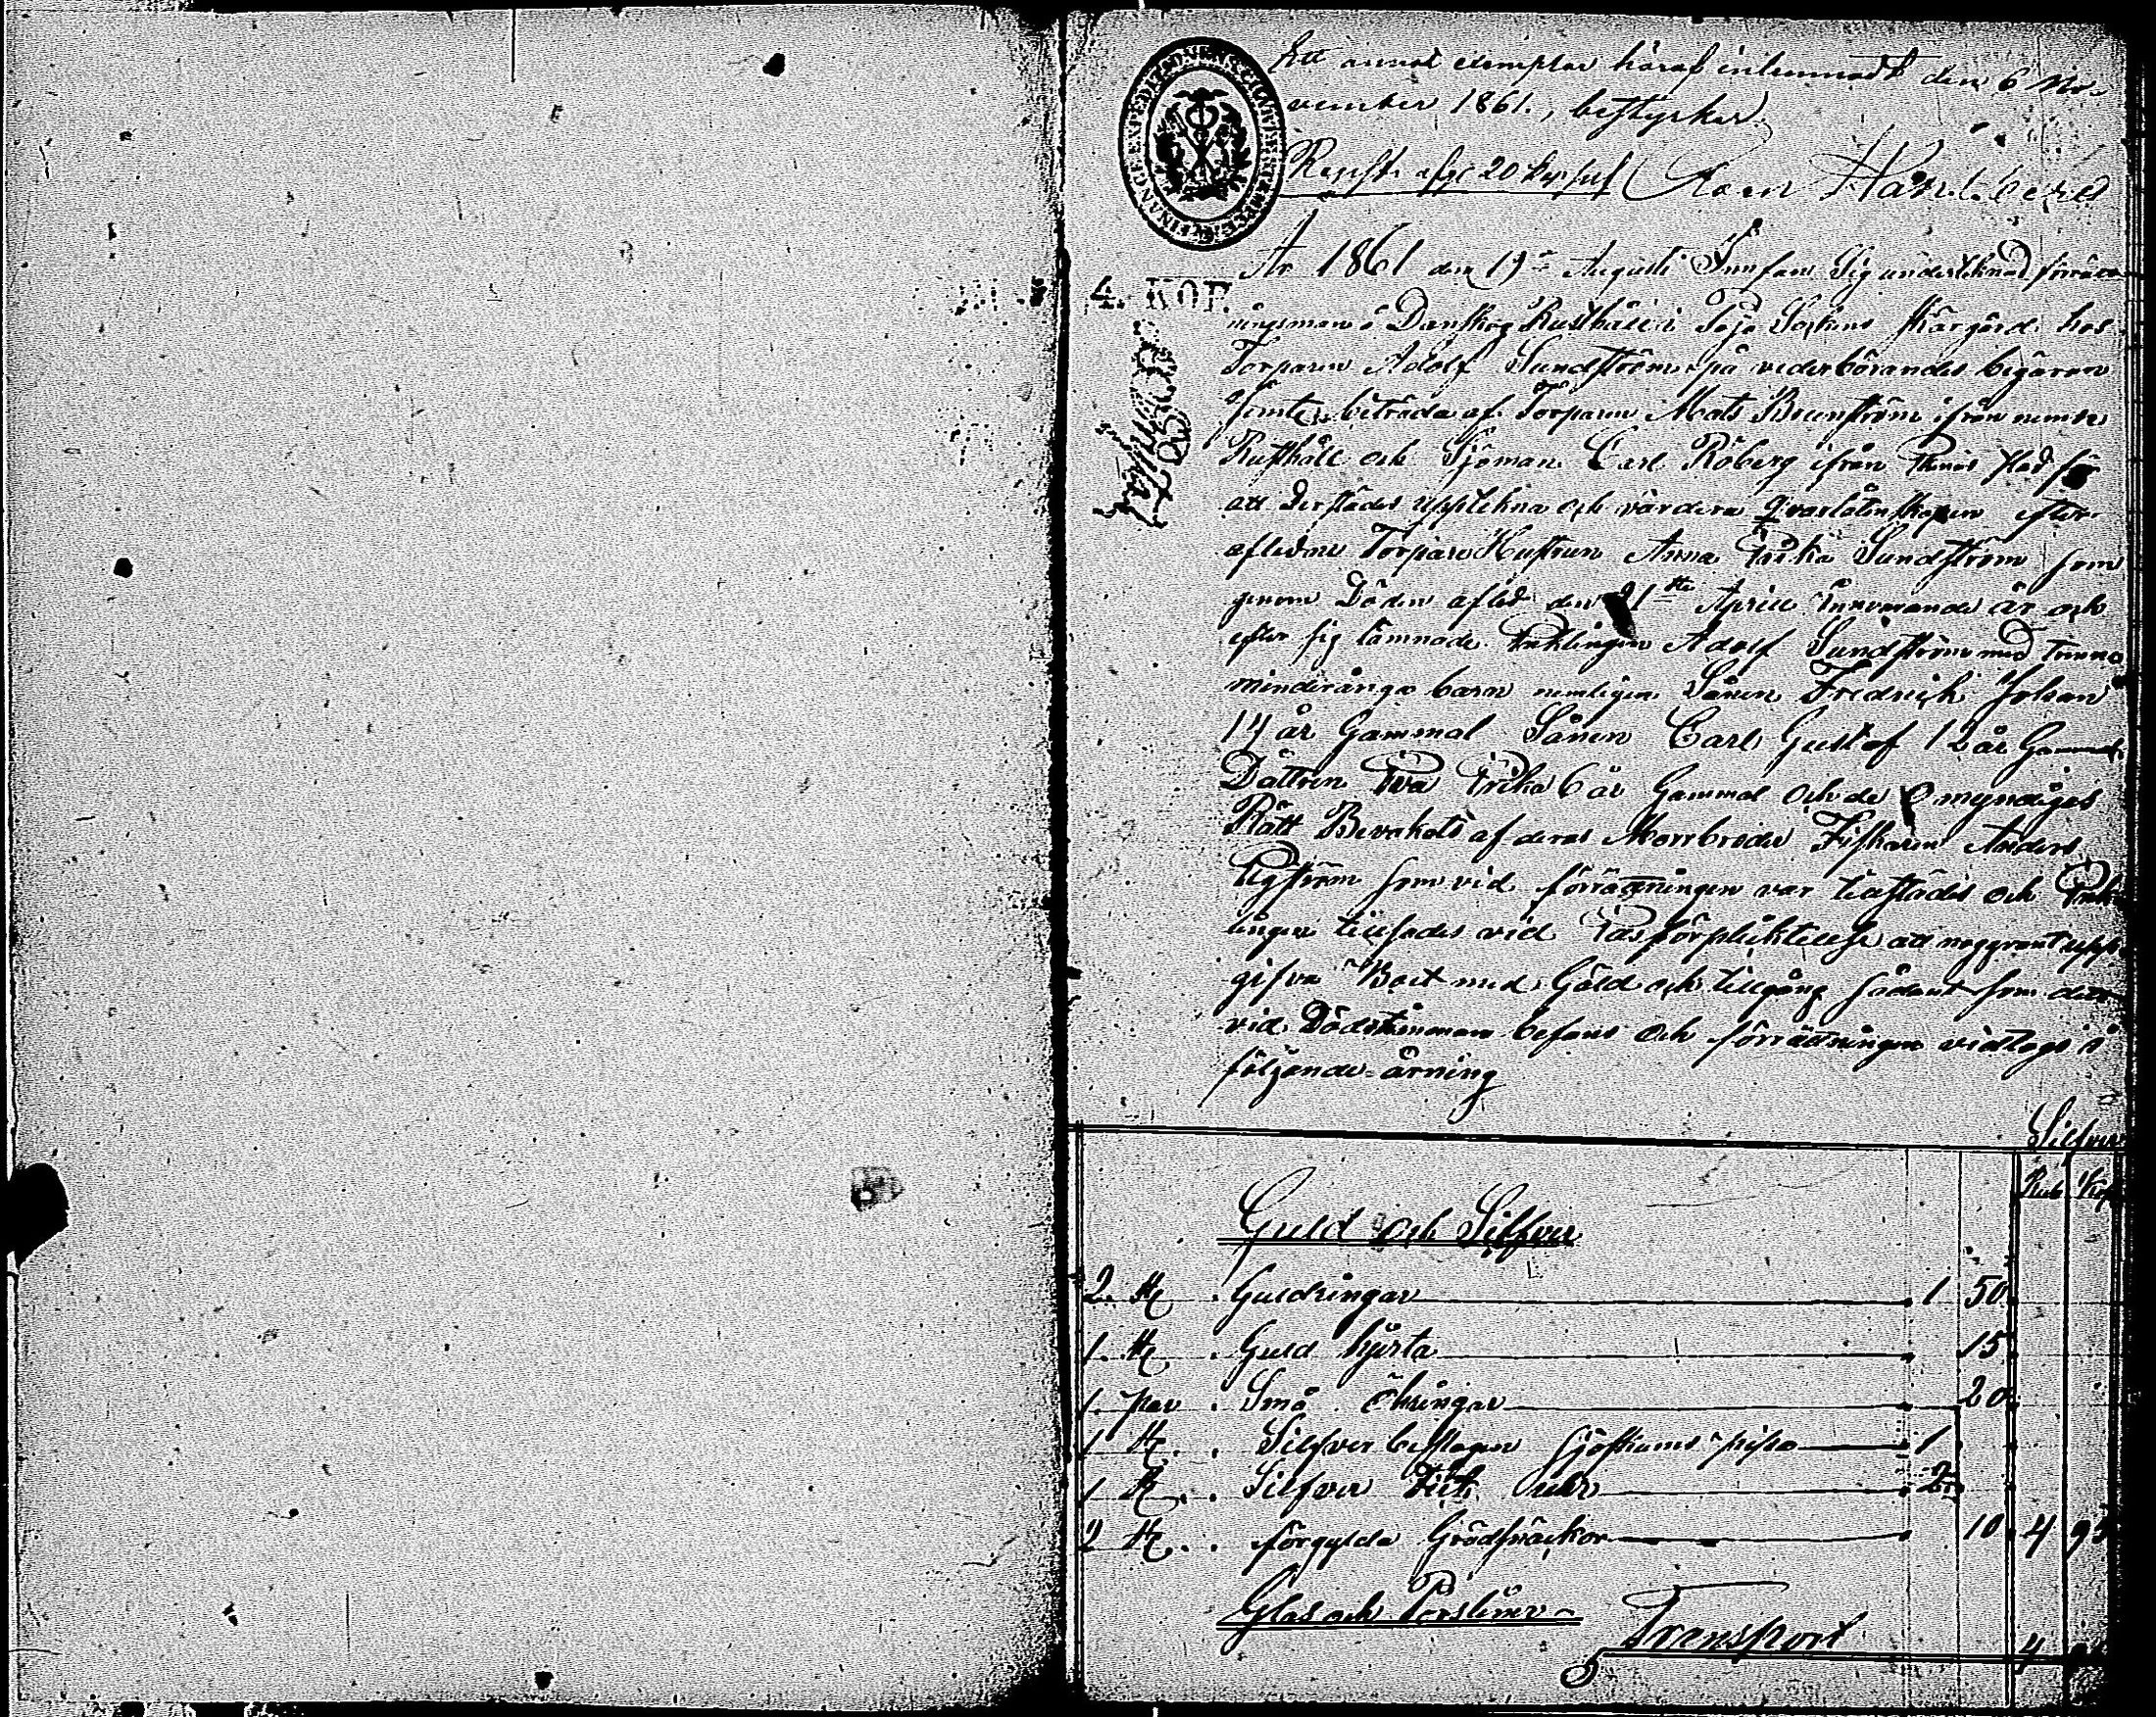 Ett annat exemplar häraf inlemnadt den 6 No-
vember 1861., bestyrker
FINANCE EXPEDITIONENS CHARTÆ STÆMPEL
4. KOP.
År 1861 den 19de Augusti Innfant Sig undertecknad förrätt-
ningsman å Danskog Rusthåll i Tojo Sockens skärgård hos
Torparen Adolf Sundström på vederbörandes begäran
jemte biträde af Torparen Mats Brunström ifrån nemde
Rusthåll och Sjöman Carl Röberg ifrån stad för
att derstädes uppteckna och värdera Qvarlåtenskapen efter
aflidne Torpare Hustrun Anna Erika Sundström som
genom Döden afled den 21ste April innvarande år och
efter sig lämnade Enklingen Adolf Sundström med trenne
minderåriga barn nemligen Sånen Fredrich Johan
14 år Gammal Sånen Carl Gustaf 12 år Gammal
Dåttren Eva Erika 6 år Gammal och de Omyndigas
Rätt Bevakats af deras Morrbroder Fiskaren Anders
som vid förrättningen var tillstädes och Enk-
lingen tillsades vid Edsförpliktelse att noggrant upp-
gifva Boet med Gäld och tillgång sådant som det
vid Dödstimman befans och förrättningen vidtogs i
följande årning
Silfver
Rub Kop
Guld och Silfver
2. St. Guldringar 1 50
1. St. Guld hjerta 15
1. par Små Öhringar 20
1 St. Silfver beslagen sjöskums pipa 1
1 St. Silfver Fick uhr 2
2 St. förgylda 10 4 95
Glas och Porsliner
Transport 4